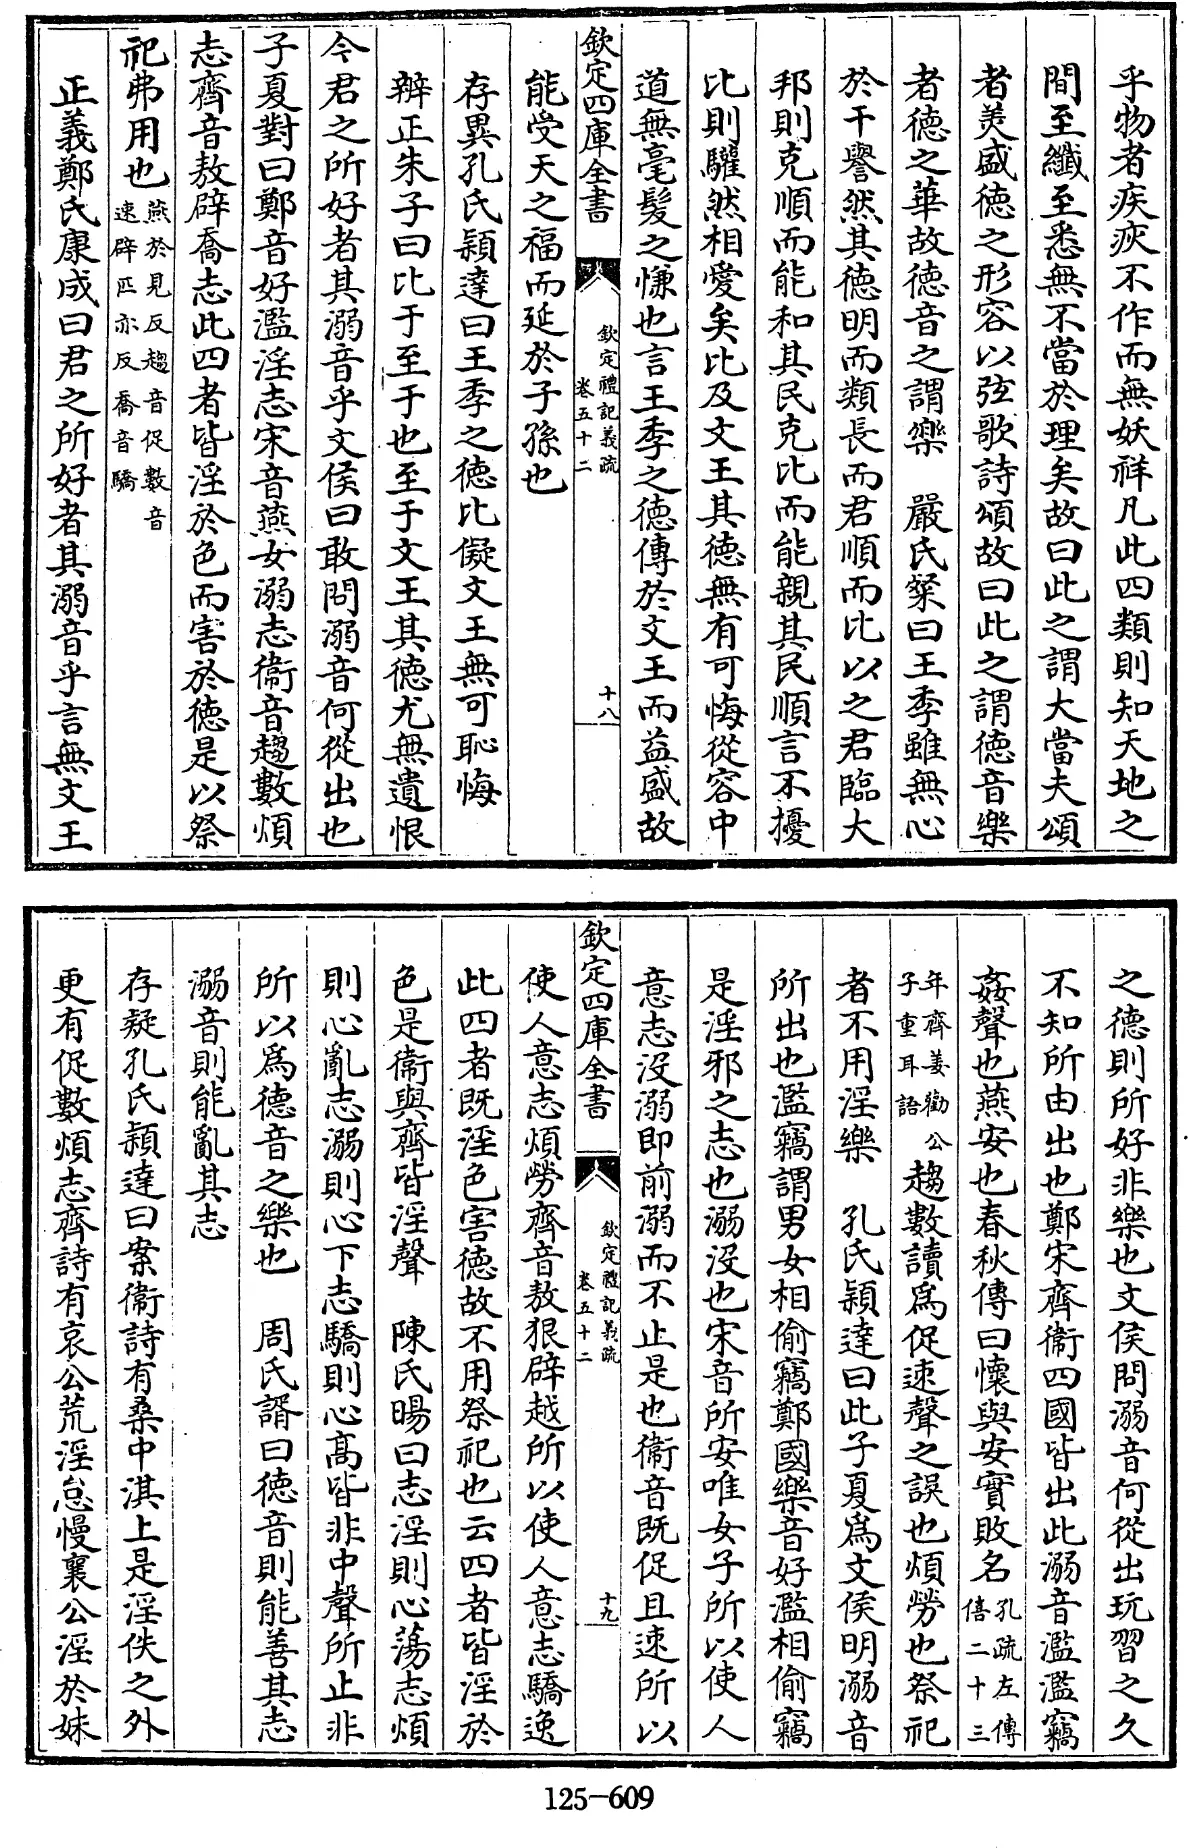 乎物者疾疢不作而無妖祥凡此四類則知天地之
間至纖至悉無不當於理矣故曰此之謂大當夫頌
者美盛徳之形容以弦歌詩頌故曰此之謂徳音樂
者徳之華故徳音之謂樂　嚴氏粲曰王季雖無心
於干譽然其徳明而類長而君順而比以之君臨大
邦則克順而能和其民克比而能親其民順言不擾
比則驩然相愛矣比及文王其徳無有可悔從容中
道無毫髮之慊也言王季之徳傳於文王而益盛故
欽定四庫全書
欽定禮記義疏
卷五十二
十八
能受天之福而延於子孫也
存異孔氏穎達曰王季之徳比儗文王無可恥悔
辨正朱子曰比于至于也至于文王其徳尤無遺恨
今君之所好者其溺音乎文侯曰敢問溺音何從出也
子夏對曰鄭音好濫淫志宋音燕女溺志衞音趨數煩
志齊音敖辟喬志此四者皆淫於色而害於徳是以祭
祀弗用也燕於見反趨音促數音
速辟匹亦反喬音驕
正義鄭氏康成曰君之所好者其溺音乎言無文王
之徳則所好非樂也文侯問溺音何從出玩習之久
不知所由出也鄭宋齊衞四國皆出此溺音濫濫竊
姦聲也燕安也春秋傳曰懷與安實敗名孔疏左傳
僖二十三
年齊姜勸公
子重耳語趨數讀爲促速聲之誤也煩勞也祭祀
者不用淫樂　孔氏穎達曰此子夏爲文侯明溺音
所出也濫竊謂男女相偷竊鄭國樂音好濫相偷竊
是淫邪之志也溺没也宋音所安唯女子所以使人
意志没溺即前溺而不止是也衞音既促且速所以
欽定四庫全書
欽定禮記義疏
卷五十二
十九
使人意志煩勞齊音敖狠辟越所以使人意志驕逸
此四者既淫色害徳故不用祭祀也云四者皆淫於
色是衞與齊皆淫聲　陳氏暘曰志淫則心蕩志煩
則心亂志溺則心下志驕則心高皆非中聲所止非
所以爲徳音之樂也　周氏諝曰徳音則能善其志
溺音則能亂其志
存疑孔氏穎達曰案衞詩有桑中淇上是淫佚之外
更有促數煩志齊詩有哀公荒淫怠慢襄公淫於妹
125-609